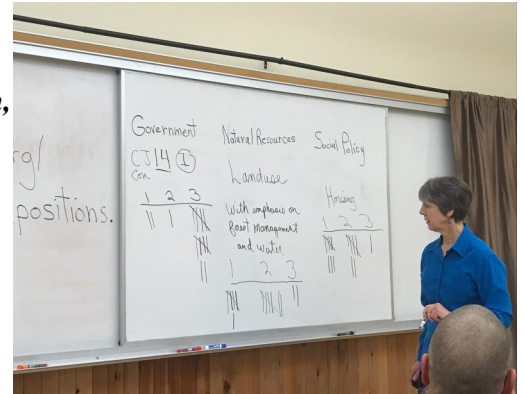 rg/
positions.
Government
CJ 14 I
Con
1 2 3
|| | |||| |||| ||
Natural Resources
Landuse
With emphasis on
forest management
and water
1 2 3
|||| | |||| || ||
Social Policy
Housing
1 2 3
|||| ||| |||| || |